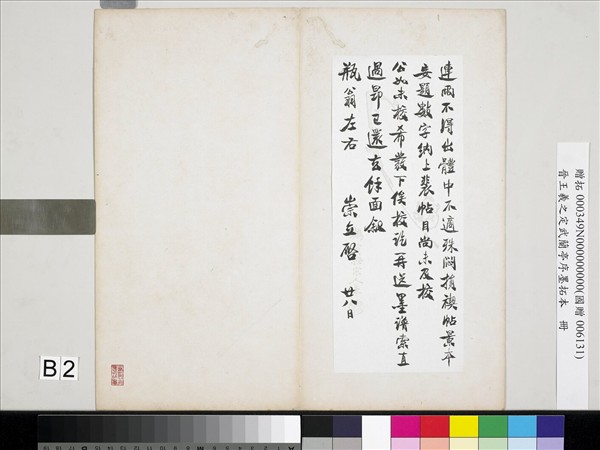 連雨不得出體中不適殊悶損禊帖景本
妄題數字納上裴帖目尚未及校
公如未校希發下俟校訖再送墨譜索直
過昂已還去餘面叙
瓶翁左右 崇立啓 廿八日
贈拓 000349N000000000(國贈 006131)
晉王羲之定武蘭亭序墨拓本 冊
B2